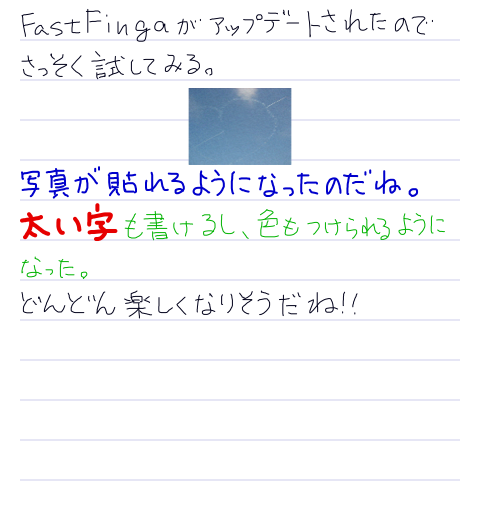 FastFingaがアップデートされたので
さっそく試してみる。
写真が貼れるようになったのだね。
太い字も書けるし、色もつけられるように
なった。
どんどん楽しくなりそうだね!!